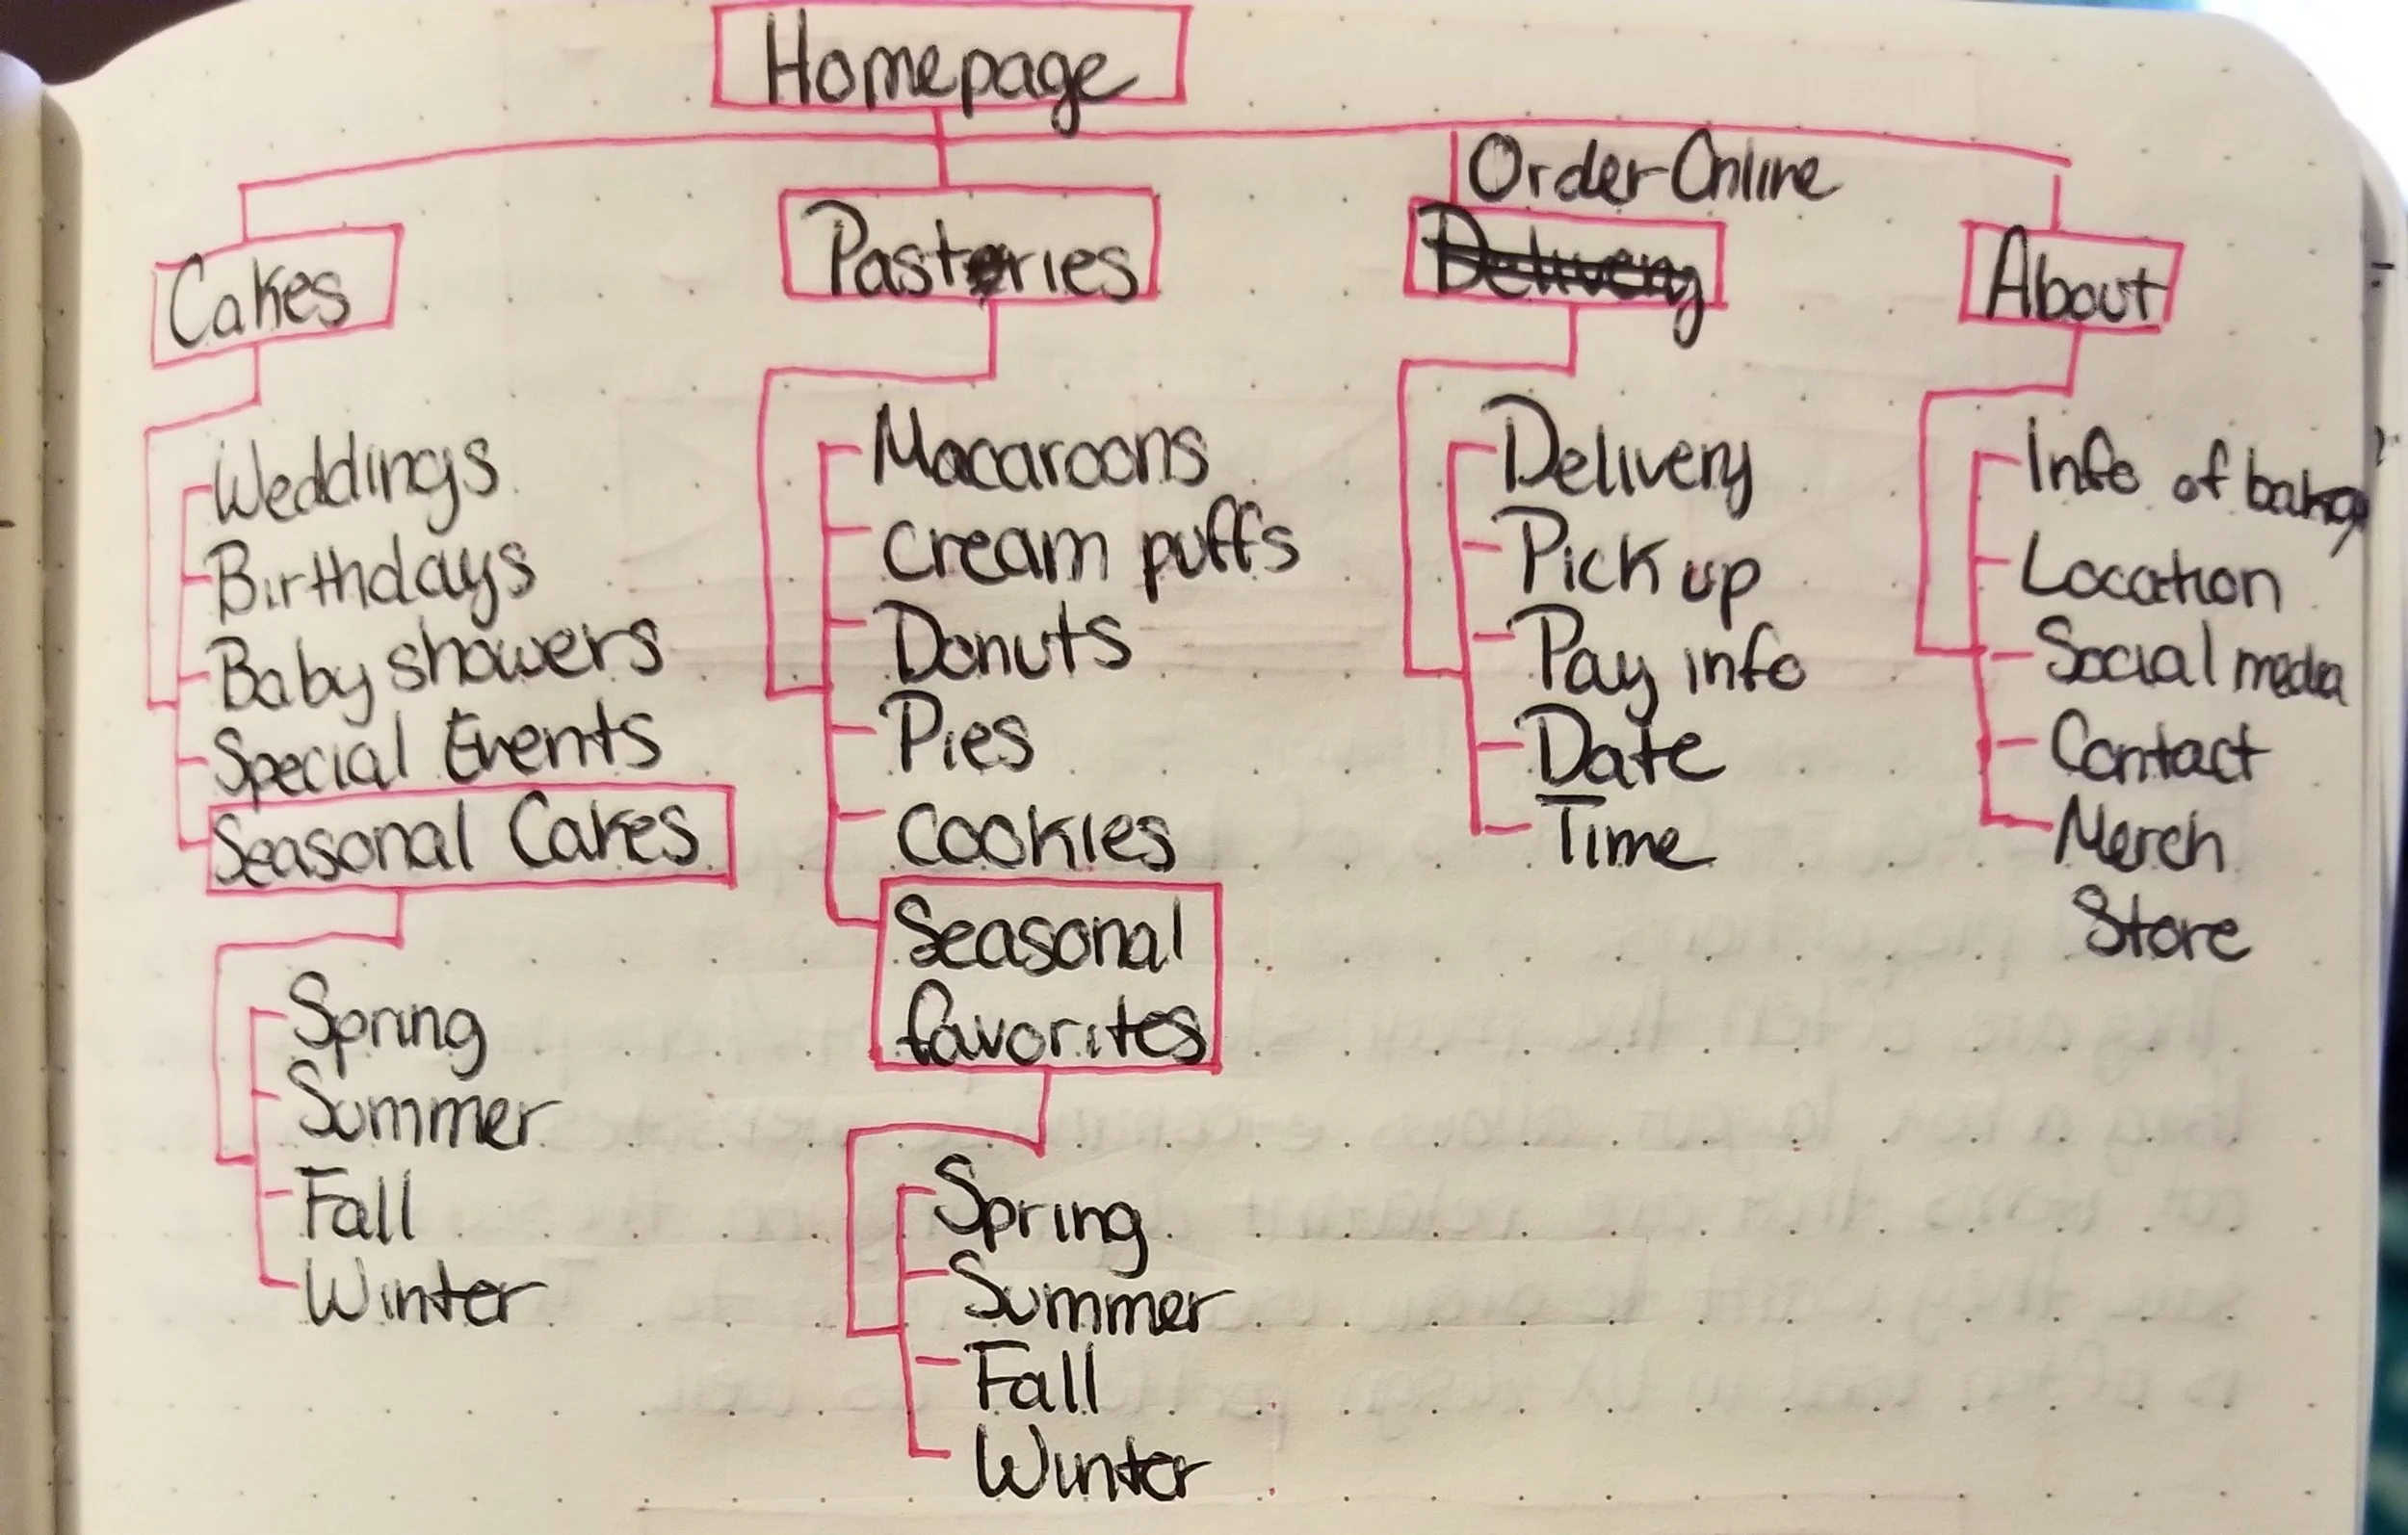 Homepage
Cakes
Weddings
Birthdays
Baby showers
Special Events
Seasonal Cakes
Spring
Summer
Fall
Winter
Pastries
Macaroons
Cream puffs
Donuts
Pies
Cookies
Seasonal
favorites
Spring
Summer
Fall
Winter
Order Online
Delivery
Delivery
Pick up
Pay info
Date
Time
About
Info of bakery
Location
Social media
Contact
Merch
Store